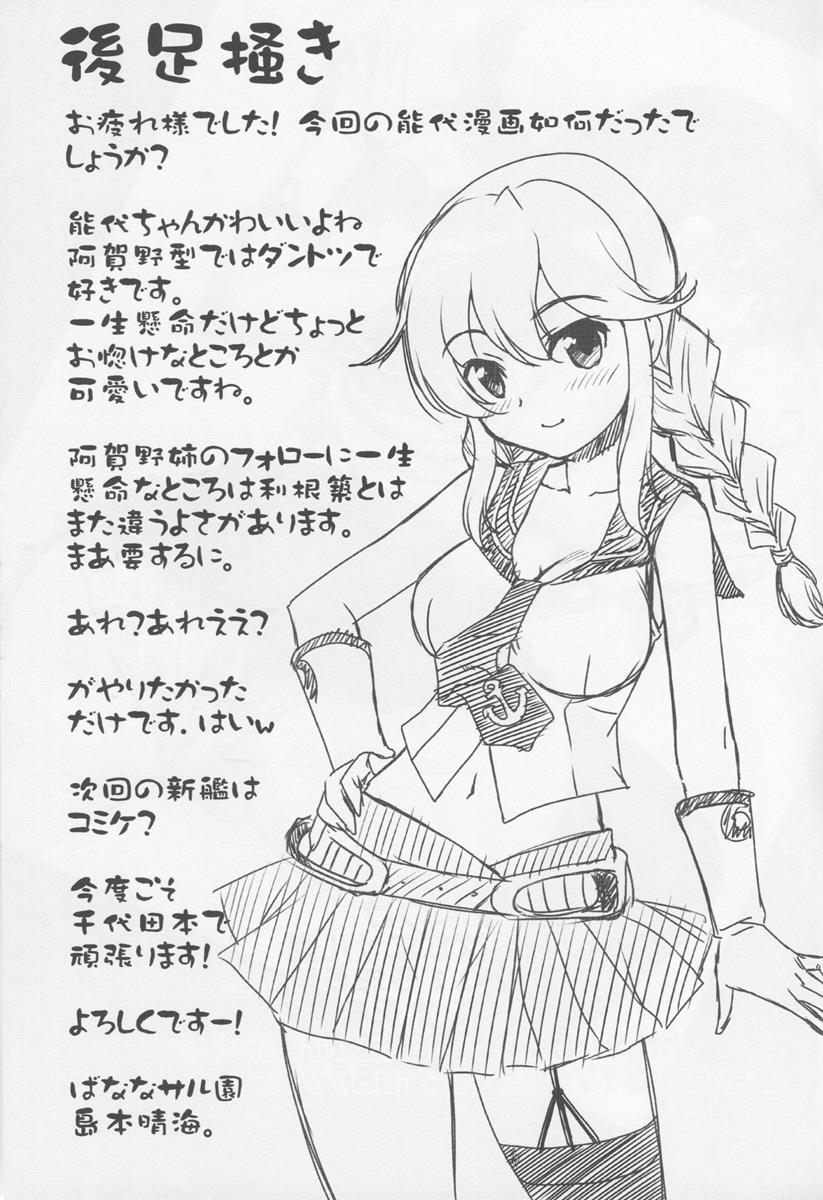 後足掻き
お疲れ様でした! 今回の能代漫画如何だったで
しょうか?
能代ちゃんかわいいよね
阿賀野型ではダントツで
好きです。
一生懸命だけどちょっと
お惚けなところとか
可愛いですね。
阿賀野姉のフォローに一生
懸命なところは利根築とは
また違うよさがあります。
まあ要するに。
あれ?あれええ?
がやりたかった
だけです. はいw
次回の新艦は
コミケ?
今度ごそ
千代田本で
頑張ります!
よろしくですー!
ばななサル園
島本晴海。